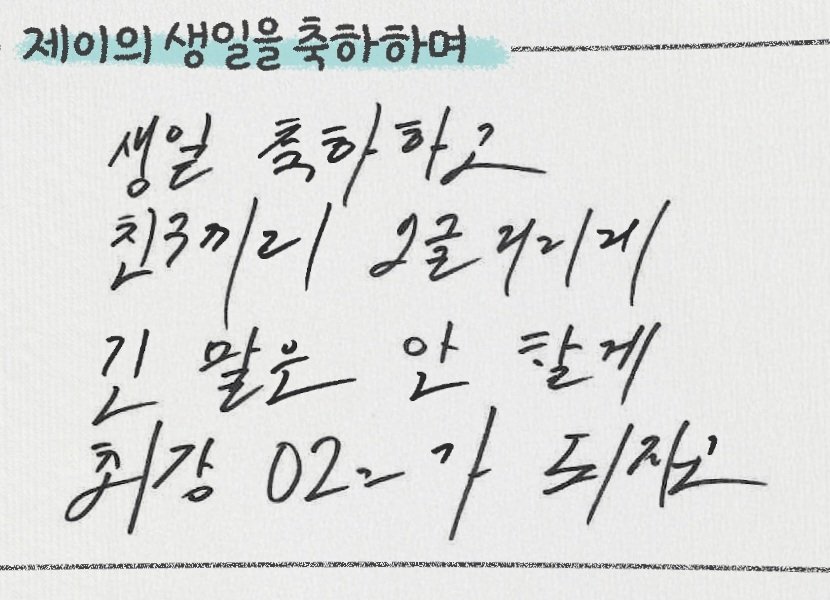 제이의 생일을 축하하며
생일 축하하고
친구끼리 오글거리게
긴 말은 안 할게
최강 02즈가 되자고